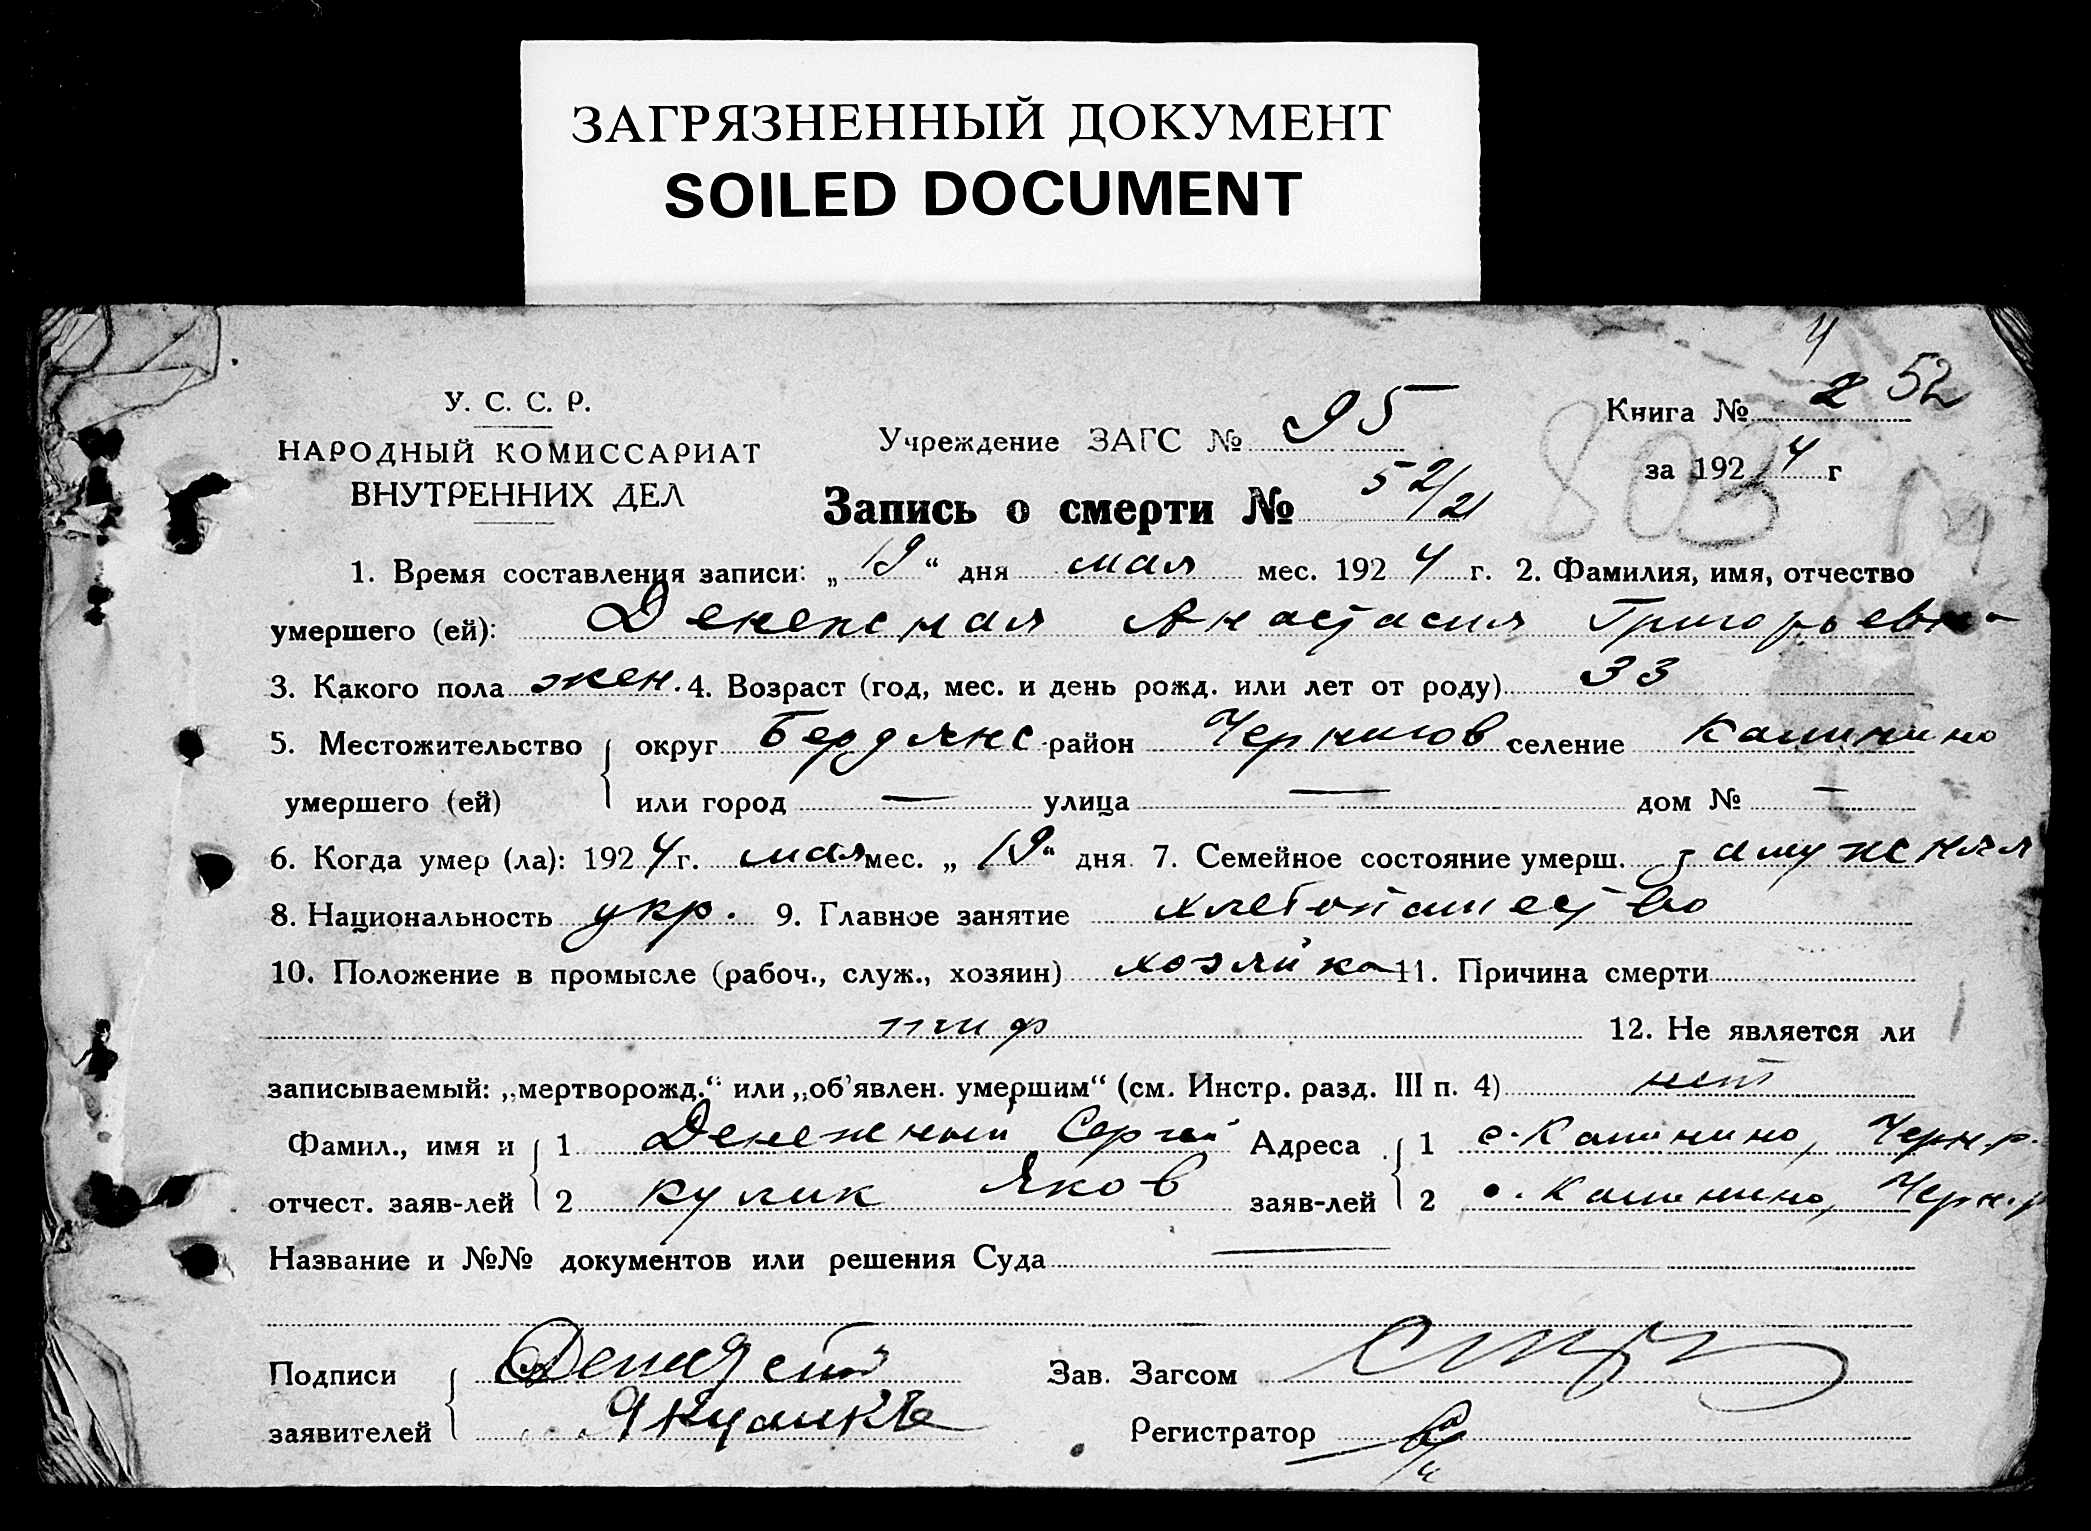 ЗАГРЯЗНЕННЫЙ ДОКУМЕНТ
SOILED DOCUMENT
У. С. С. Р.
НАРОДНЫЙ КОМИССАРИАТ
ВНУТРЕННИХ ДЕЛ
Учреждение ЗАГС № 95
Запись о смерти № 52/21
Книга № 2 52
за 1924 г
803
1. Время составления записи: „19“ дня мая мес. 1924 г. 2. Фамилия, имя, отчество
умершего (ей): Денежная Анастасия Григорьевн-
3. Какого пола жен. 4. Возраст (год, мес. и день рожд. или лет от роду) 33
5. Местожительство округ Бердянс район Чернигов селение Калинино
умершего (ей) или город — улица — дом № —
6. Когда умер (ла): 1924 г. мая мес. „19“ дня 7. Семейное состояние умерш. замужняя
8. Национальность укр. 9. Главное занятие хлебопашество
10. Положение в промысле (рабоч., служ., хозяин) хозяйка 11. Причина смерти
тиф 12. Не является ли
записываемый: „мертворожд.“ или „об’явлен. умершим“ (см. Инстр. разд. III п. 4) нет
Фамил., имя и 1 Денежный Сергей Адреса 1 с. Калинино, Черн. р.
отчест. заяв-лей 2 Кулик Яков заяв-лей 2 с. Калинино, Черн. р
Название и №№ документов или решения Суда —
Подписи Зав. Загсом
заявителей Якуликъ Регистратор